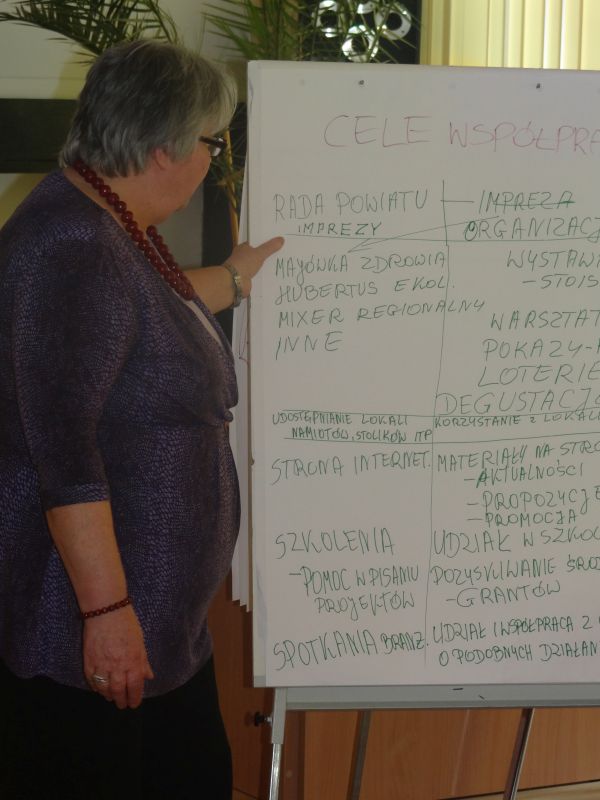 CELE WSPÓŁPRA
RADA POWIATU — IMPREZA
IMPREZY ORGANIZACJ
MAJÓWKA ZDROWIA WYSTAWI
HUBERTUS EKOL. - STOIS
MIXER REGIONALNY
INNE WARSZTAT
POKAZY-
LOTERIE
DEGUSTACJO
UDOSTĘPNIANIE LOKALI KORZYSTANIE Z LOKALI
NAMIOTÓW, STOLIKÓW ITP
STRONA INTERNET. MATERIAŁY NA STRO
- AKTUALNOŚCI
- PROPOZYCJE
- PROMOCJA
SZKOLENIA UDZIAŁ W SZKOL
- POMOC W PISANIU POZYSKIWANIE ŚROD
PROJEKTÓW - GRANTÓW
SPOTKANIA BRANŻ. UDZIAŁ I WSPÓŁPRACA Z
O PODOBNYCH DZIAŁAN